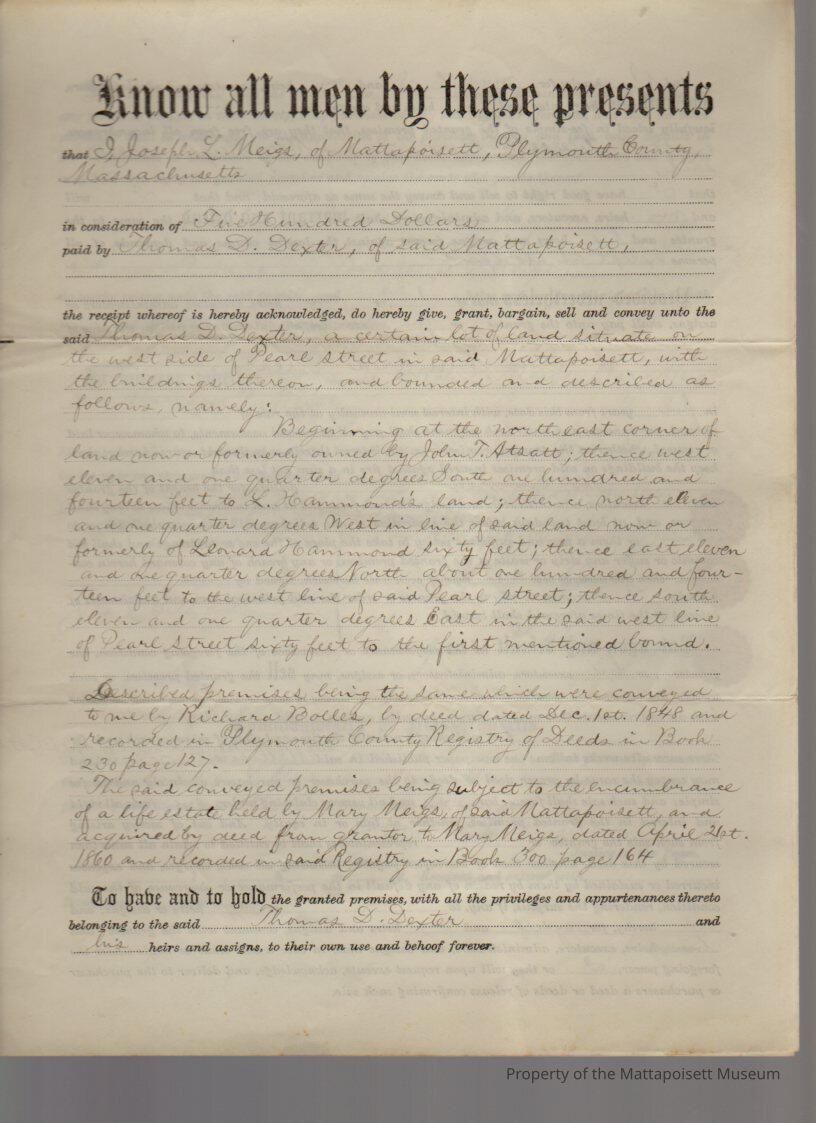 Know all men by these presents
that I, Joseph L. Meigs, of Mattapoisett, Plymouth County,
Massachusetts
in consideration of Five Hundred Dollars
paid by Thomas D. Dexter, of said Mattapoisett,
the receipt whereof is hereby acknowledged, do hereby give, grant, bargain, sell and convey unto the
said Thomas D. Dexter, a certain lot of land situate on
the west side of Pearl street in said Mattapoisett, with
the buildings thereon, and bounded and described as
follows, namely:
Beginning at the northeast corner of
land now or formerly owned by John T. Atsatt; thence west
eleven and one quarter degrees South one hundred and
fourteen feet to L. Hammond's land; thence north eleven
and one quarter degrees West in line of said land now or
formerly of Leonard Hammond sixty feet; thence east eleven
and one quarter degrees North about one hundred and four-
teen feet to the west line of said Pearl street; thence south
eleven and one quarter degrees East in the said west line
of Pearl street sixty feet to the first mentioned bound.
Described premises being the same which were conveyed
to me by Richard Bolles, by deed dated Dec. 1st. 1848 and
recorded in Plymouth County Registry of Deeds in Book
230 page 127.
The said conveyed premises being subject to the encumbrance
of a life estate held by Mary Meigs, of said Mattapoisett, and
acquired by deed from grantor to Mary Meigs, dated April 21st.
1860 and recorded in said Registry in Book 300 page 164
To have and to hold the granted premises, with all the privileges and appurtenances thereto
belonging to the said Thomas D. Dexter and
his heirs and assigns, to their own use and behoof forever.
Property of the Mattapoisett Museum